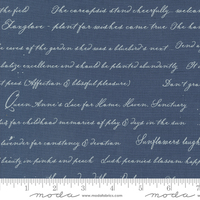 the fold The careopsis stand cheerfully, welcom
Foxglove - plant for wishes come true The bu
e eaves of the garden shed was a bluebird's nest Tend
bolize excellence and should be planted abundantly It
t peas (Affection & blissful pleasure) Don't gra
Queen Anne's Lace for Home, Haven, Sanctuary
is for childhood memories of play & days in the sun
lavender for constancy & devotion Sunflowers laugh
beauty in parks and porch Lush peonies blossom happ
moda